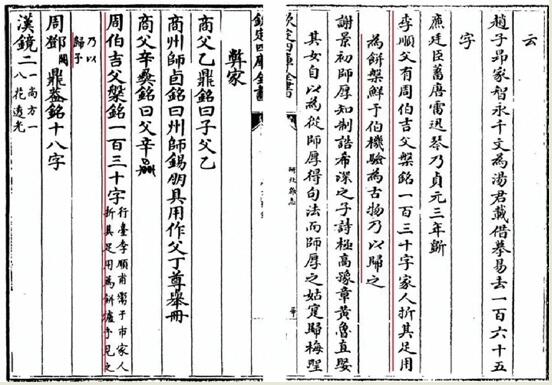 云
趙子昂家智永千文為湯君載借摹易去一百六十五
字
廷臣蓄唐雷迅琴乃貞元三年斵
李順父有周伯吉父槃銘一百三十字家人折其足用
為餅槃鮮于伯機驗為古物乃以歸之
謝景初師厚知制誥希深之子詩極高豫章黃魯直娶
其女自以為從師厚得句法而師厚之姑寔歸梅聖
欽定四庫全書
研北雜志
欽定四庫全書
彝家
商父乙鼎銘曰子父乙
商州師卣銘曰州師錫朋貝用作父丁尊舉冊
商父辛彝銘曰父辛
周伯吉父槃銘一百三十字
行臺李順甫鬻于市家人
折其足用為餅爐予見之
乃以
歸予
周鄧閎鼎蓋銘十八字
漢鏡二
一尚方一
八花透光